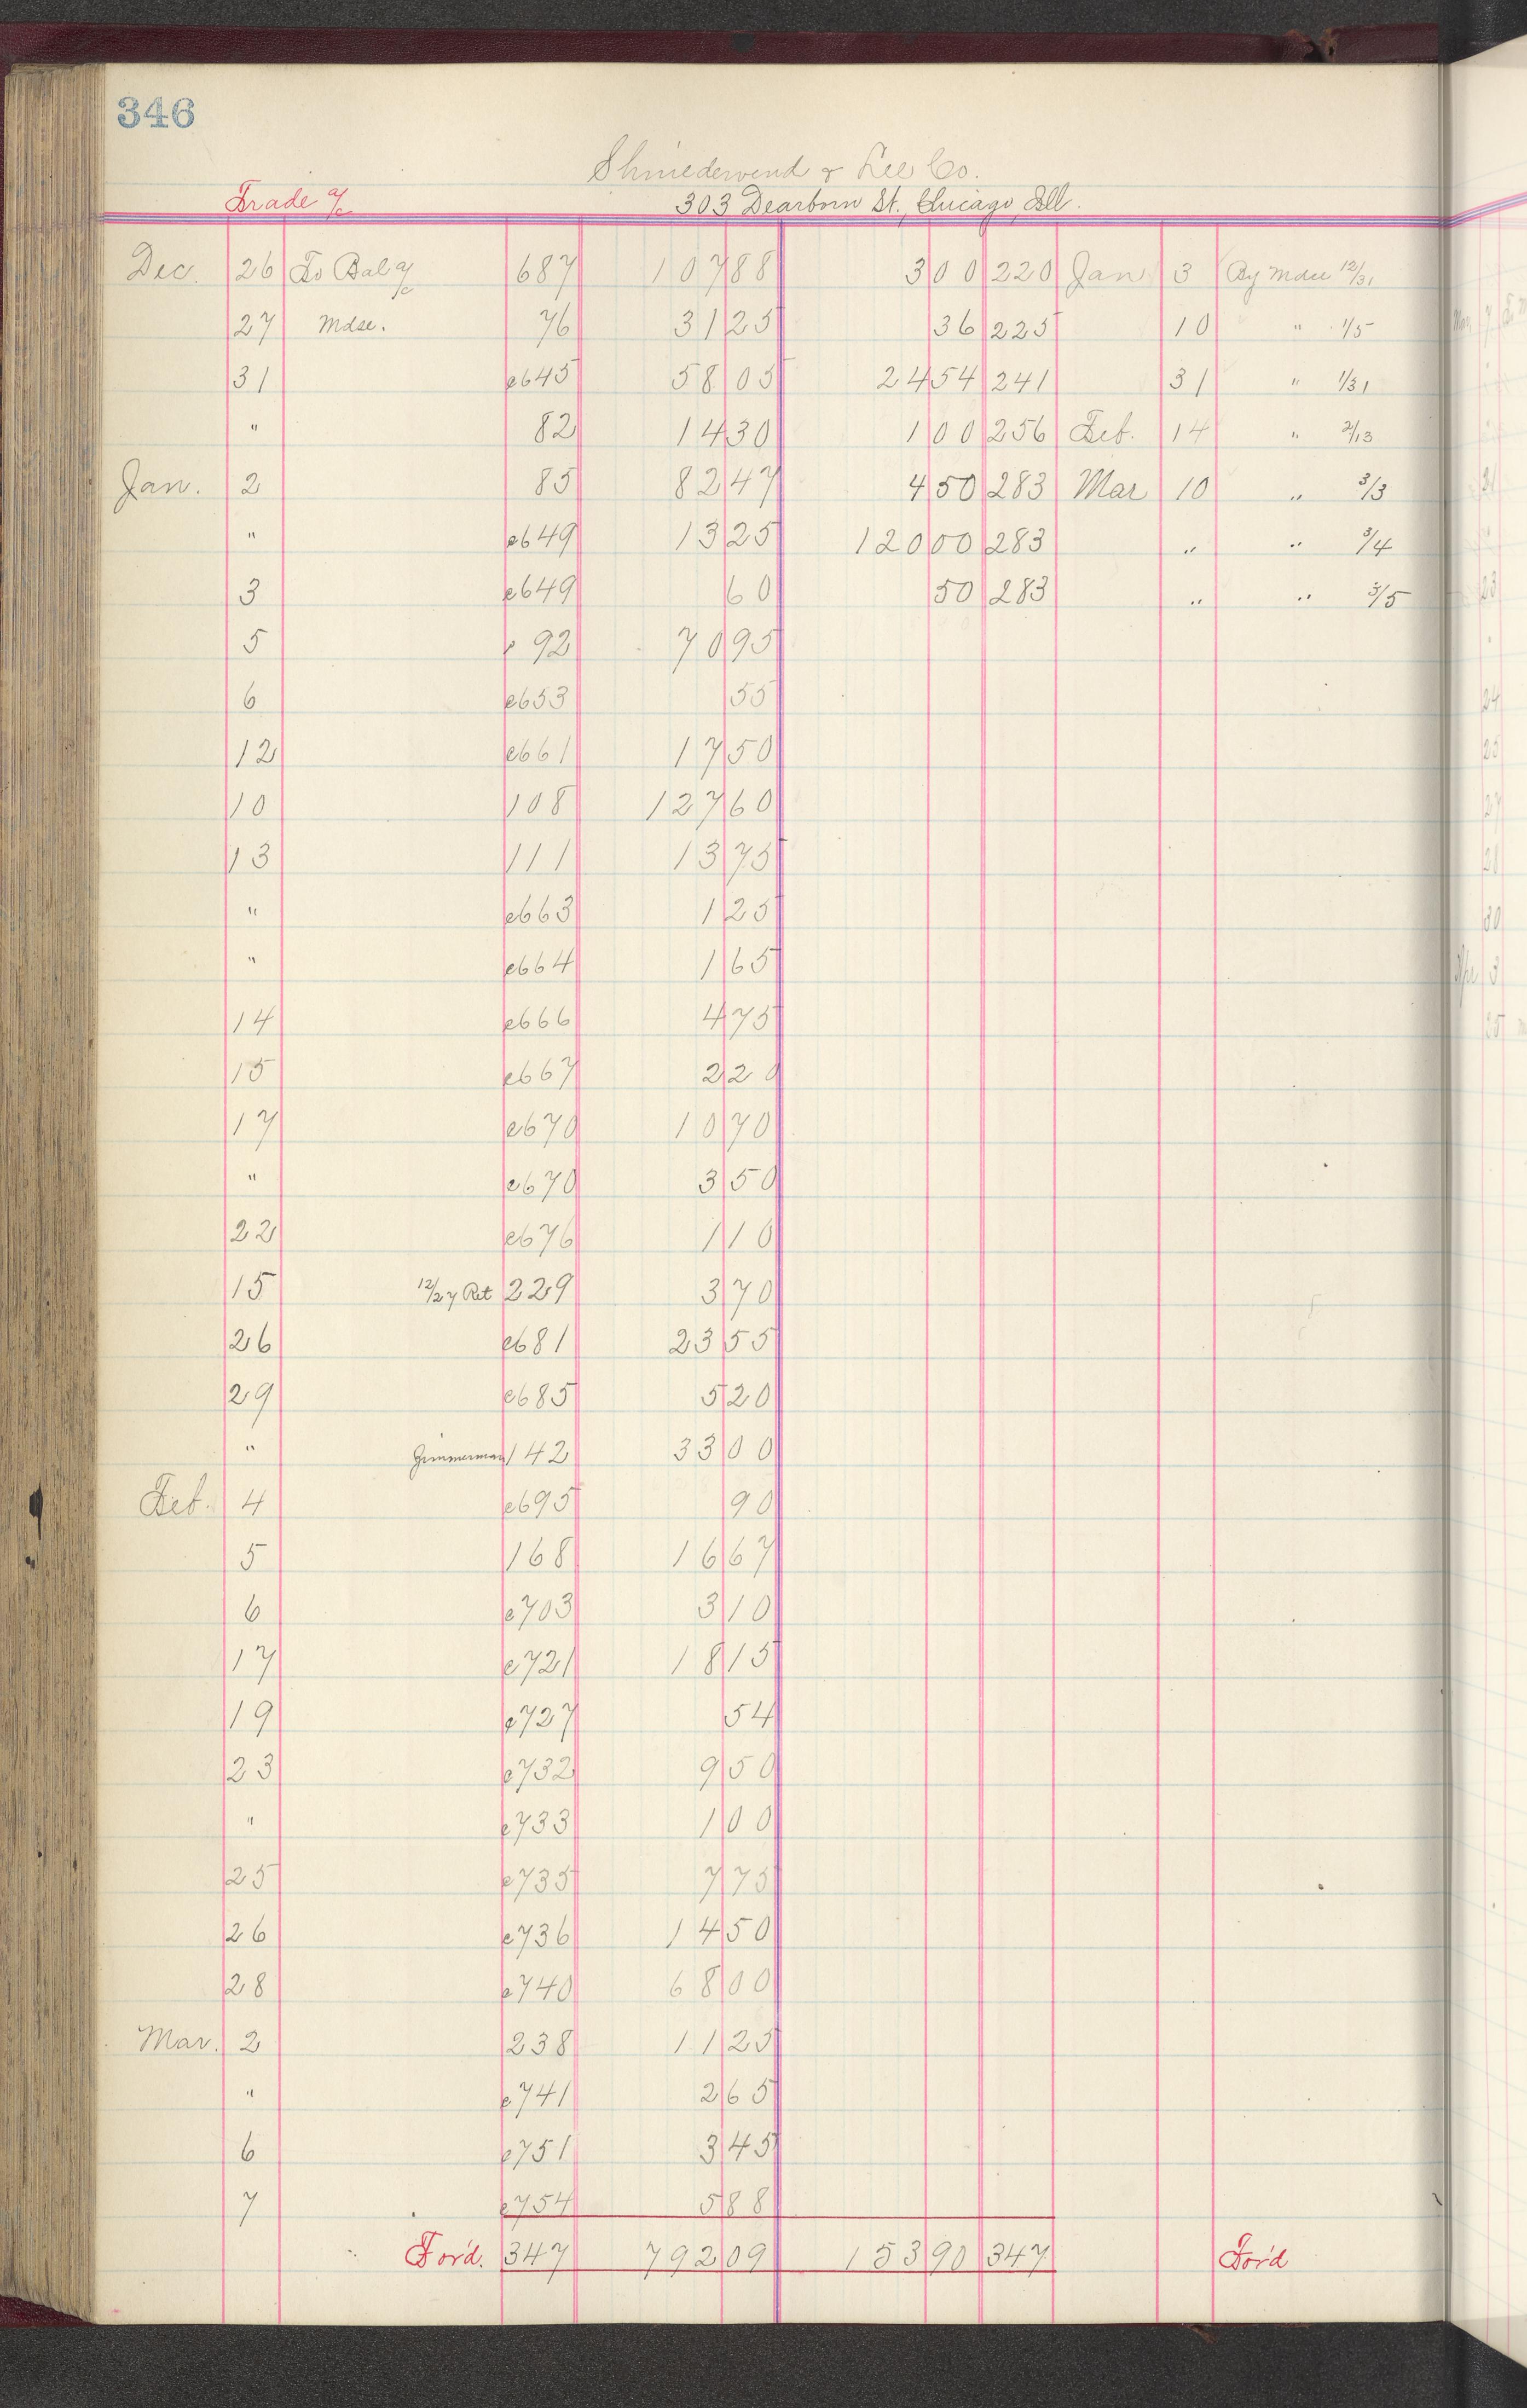 346
Shniedewend & Lee Co.
Trade a/c 303 Dearborn St., Chicago, Ill.
Dec. 26 To Bal a/c 687 107 88 3 00 220 Jan 3 By Mdse 12/31
27 Mdse. 76 31 25 36 225 10 " 1/5
31 e645 58 05 24 54 241 31 " 1/31
" 82 14 30 1 00 256 Feb. 14 " 2/13
Jan. 2 85 82 47 4 50 283 Mar 10 " 3/3
" e649 13 25 120 00 283 " " 3/4
3 e649 60 50 283 " " 3/5
5 92 70 95
6 e653 55
12 e661 17 50
10 108 127 60
13 111 13 75
" e663 1 25
" e664 1 65
14 e666 4 75
15 e667 2 20
17 e670 10 70
" e670 3 50
22 e676 1 10
15 12/27 Ret 229 3 70
26 e681 23 55
29 e685 5 20
" Zimmerman 142 33 00
Feb. 4 e695 90
5 168 16 67
6 e703 3 10
17 e721 18 15
19 e727 54
23 e732 9 50
" e733 1 00
25 e735 7 75
26 e736 14 50
28 e740 68 00
Mar. 2 238 11 25
" e741 2 65
6 e751 3 45
7 e754 5 88
For'd. 347 792 09 153 90 347 For'd